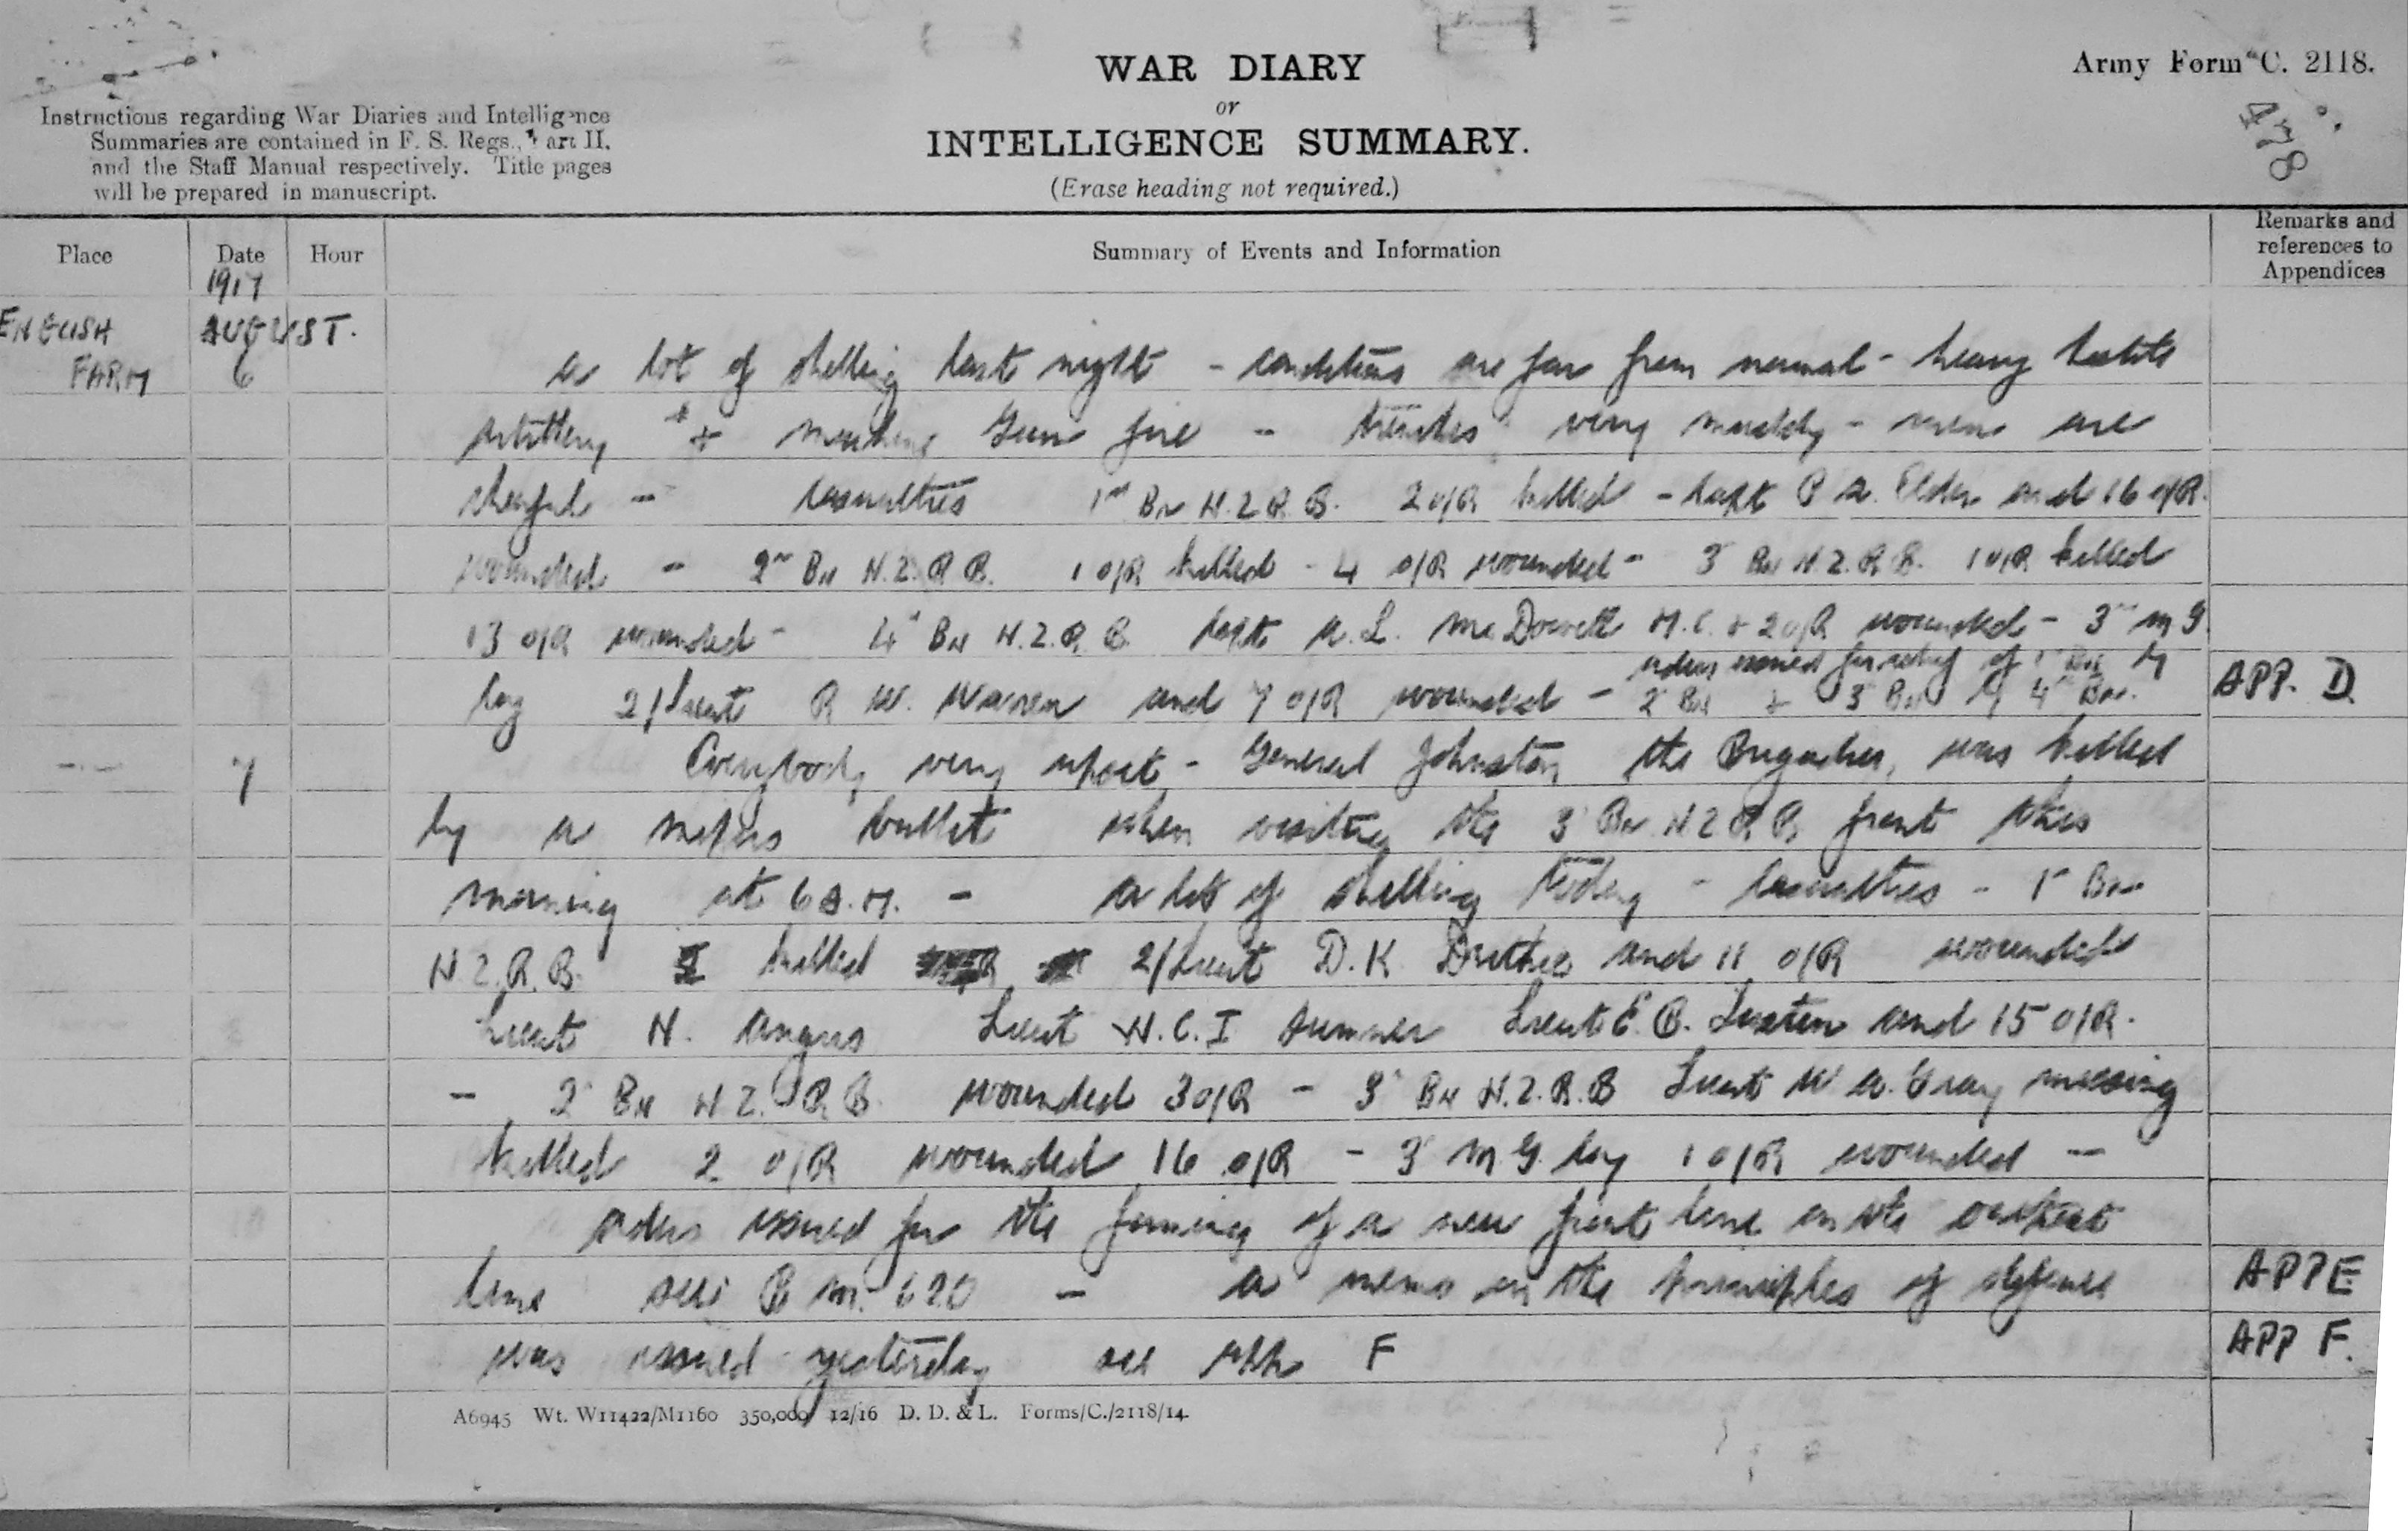 WAR DIARY
or
INTELLIGENCE SUMMARY.
(Erase heading not required.)
Army Form C. 2118.
478
Instructions regarding War Diaries and Intelligence
Summaries are contained in F. S. Regs., Part II.
and the Staff Manual respectively. Title pages
will be prepared in manuscript.
Place Date Hour Summary of Events and Information Remarks and references to Appendices
1917
ENGLISH AUGUST.
FARM 6 a lot of shelling last night - conditions are far from normal - heavy hostile
artillery + machine Gun fire - trenches very muddy - men are
cheerful - casualties 1st Bn N.Z.R.B. 2 O/R killed - Capt P A. Elder and 16 O/R.
wounded - 2nd Bn N.Z.R.B. 1 O/R killed - 4 O/R wounded - 3 Bn N.Z.R.B. 1 O/R killed
13 O/R wounded - 4 Bn N.Z.R.B. Capt A.L. McDowell M.C. + 2 O/R wounded - 3rd M G
orders issued for relief of 1 Bn by
Coy 2/Lieut R W. Warren and 7 O/R wounded - 2 Bn + 3 Bn by 4 Bn. APP. D
7 Everybody very upset - General Johnston the Brigadier, was killed
by a snipers bullet when visiting the 3 Bn N Z R B front this
morning at 6 A.M. - a lot of shelling today - casualties - 1st Bn
N.Z.R.B. killed 2/Lieut D.K. and 11 O/R wounded
Lieut N. Angus Lieut N.C.I Sumner Lieut E. B. and 15 O/R.
- 2 Bn N Z. R B. wounded 3 O/R - 3 Bn N.Z.R.B Lieut W A. Gray missing
killed 2 O/R wounded 16 O/R - 3 M.G. Coy 1 O/R wounded -
orders issued for the forming of a new front line on the outpost
line see B M. 620 - a memo on the principles of defence APP E
was issued yesterday see app F APP F.
A6945 Wt. W11422/M1160 350,000 12/16 D. D. & L. Forms/C./2118/14.